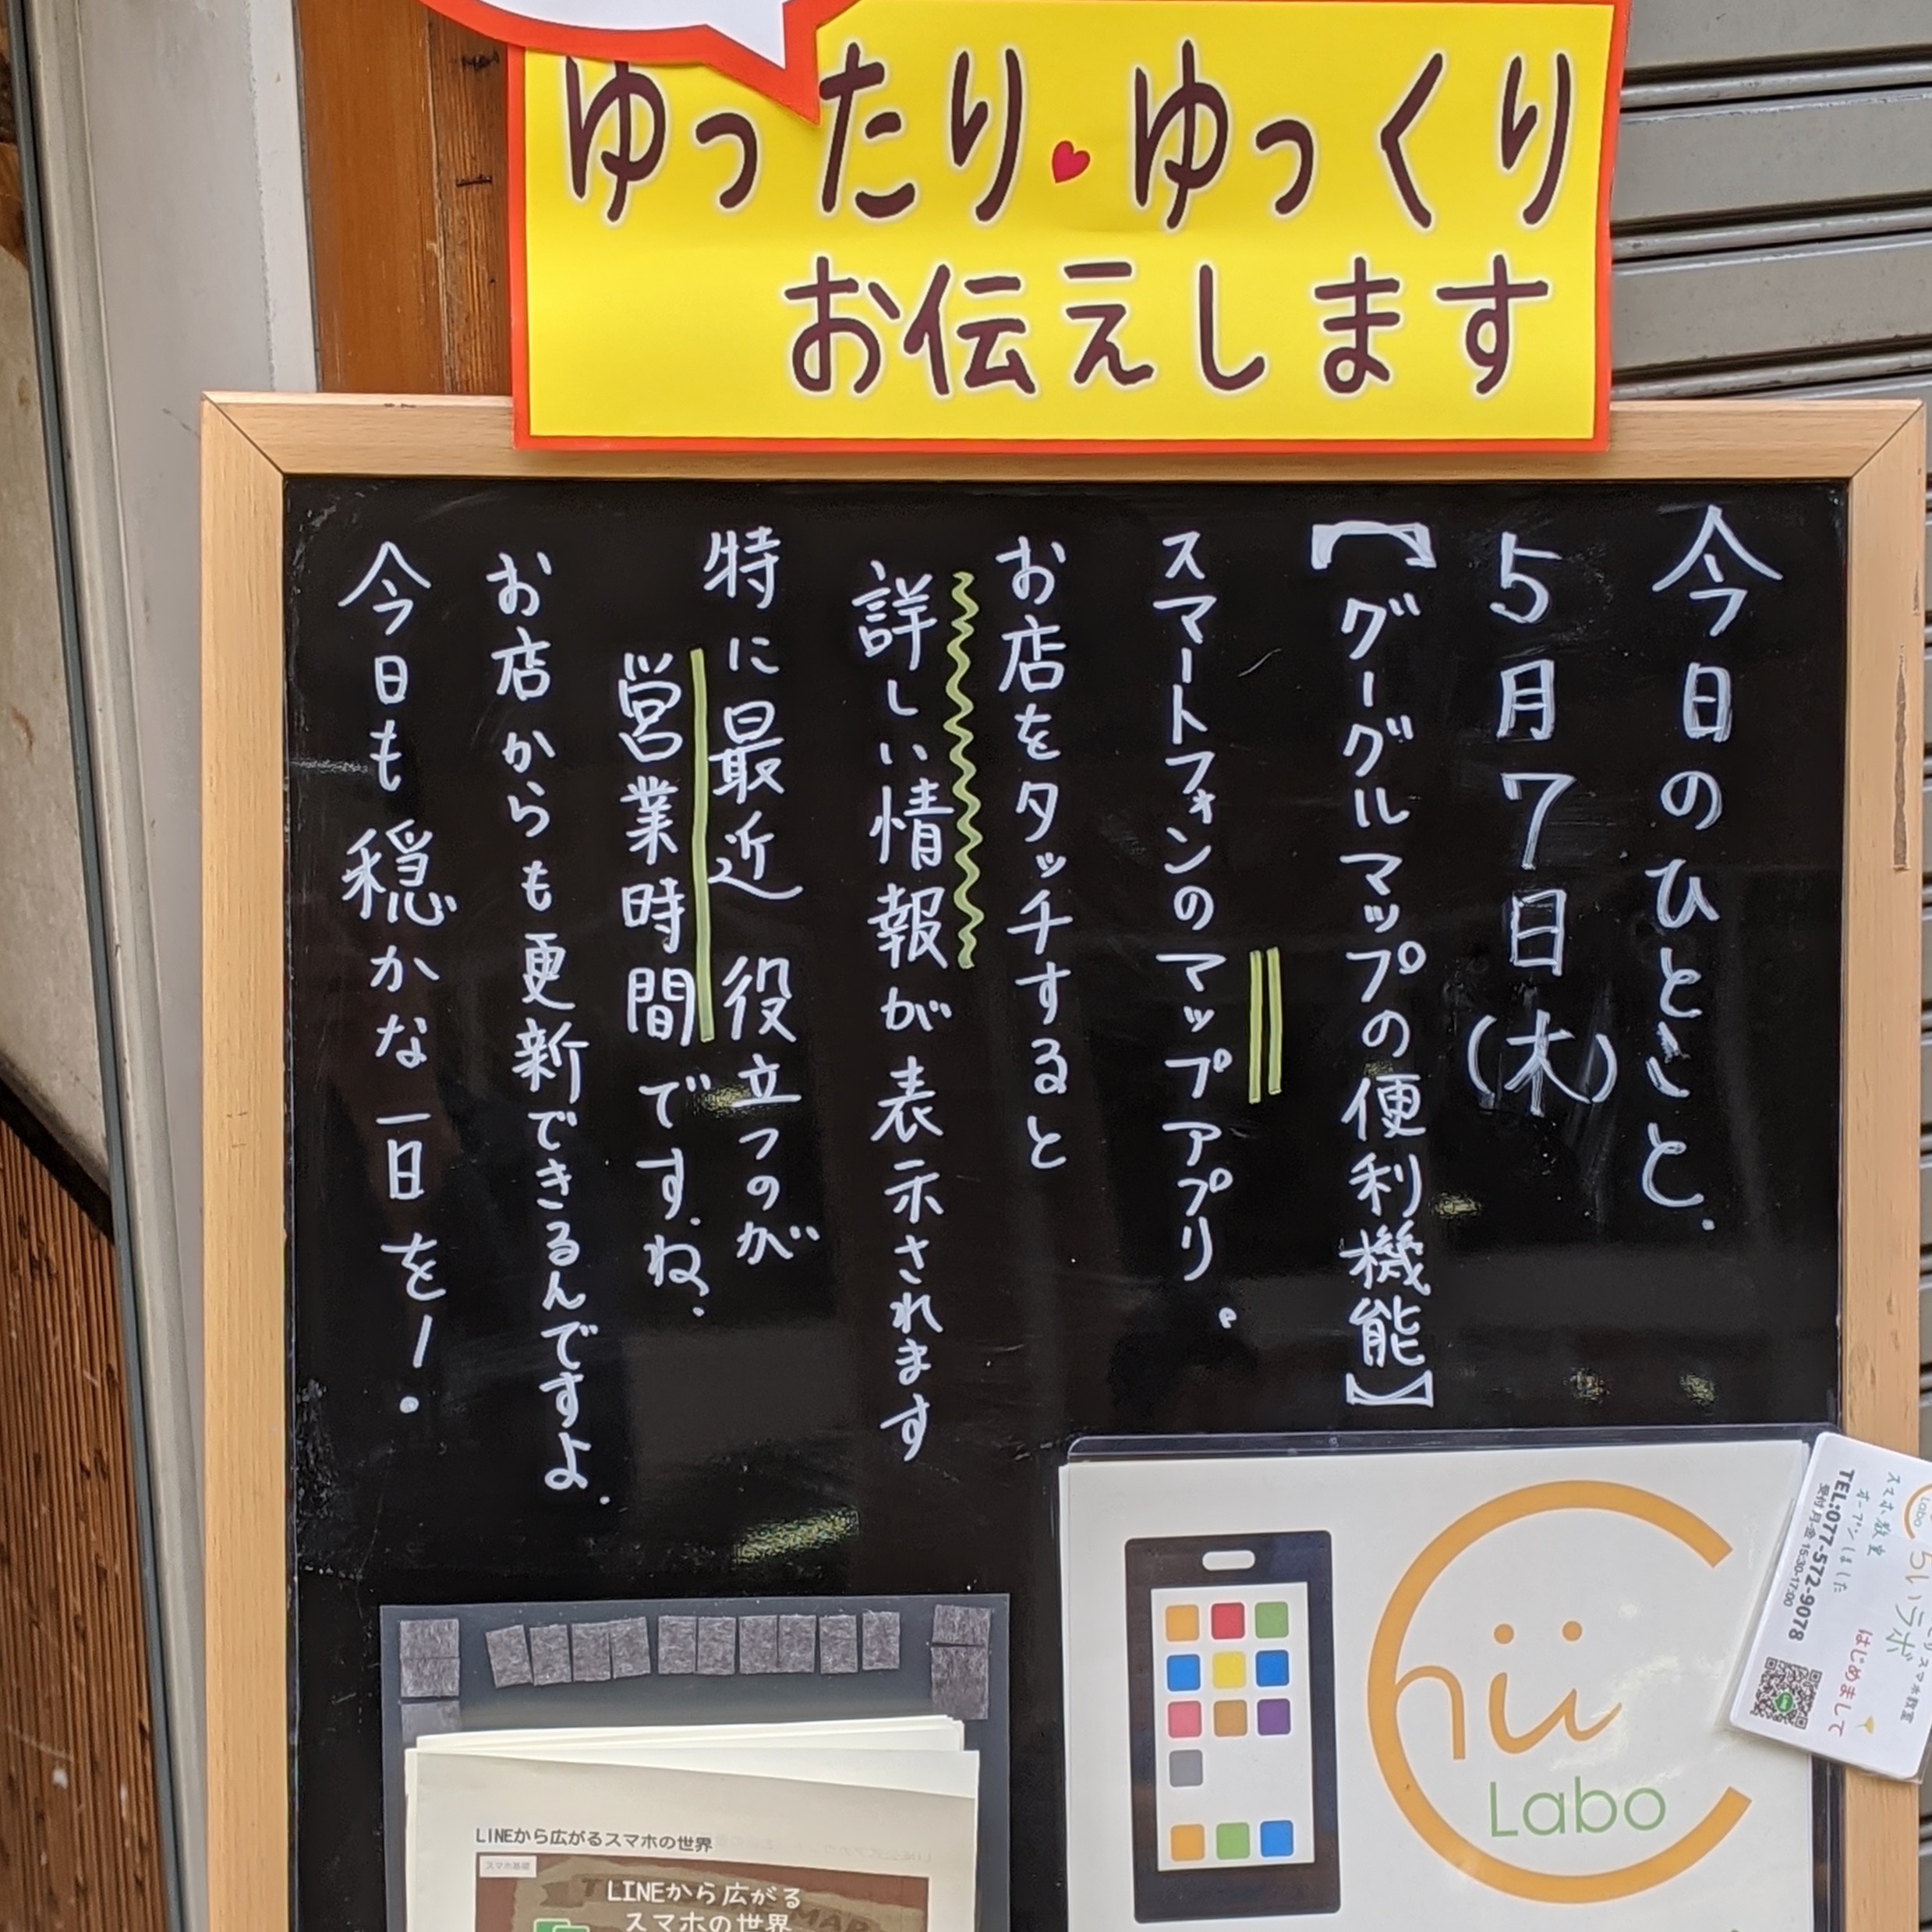 ゆったり♥ゆっくり
お伝えします
今日のひとこと.
5月7日(木)
【グーグルマップの便利機能】
スマートフォンのマップアプリ。
お店をタッチすると
詳しい情報が表示されます
特に最近役立つのが
営業時間ですね.
お店からも更新できるんですよ.
今日も穏かな一日を!
Chii
Labo
Labo
ちいラボ
スマホ教室
オープンしました
TEL:077-572-9078
受付 月-金 15:30-17:00
はじめまして
LINEから広がるスマホの世界
スマホ基礎
LINEから広がる
スマホの世界